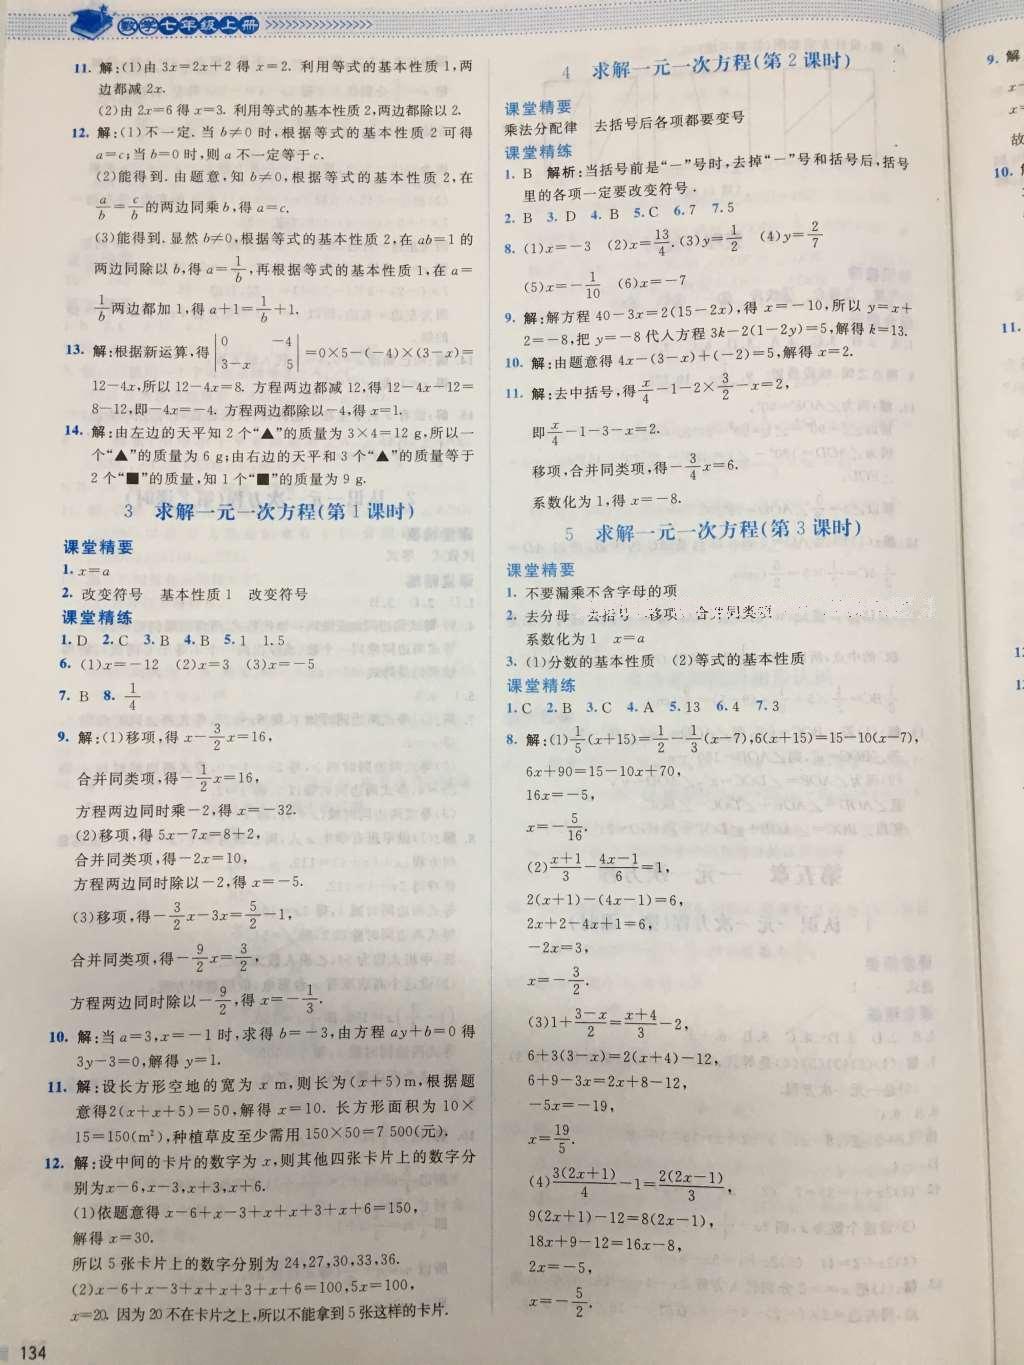 数学七年级上册
11. 解:(1)由 3x=2x+2 得 x=2. 利用等式的基本性质 1,两
边都减 2x.
(2)由 2x=6 得 x=3. 利用等式的基本性质 2,两边都除以 2.
12. 解:(1)不一定. 当 b≠0 时,根据等式的基本性质 2 可得
a=c;当 b=0 时,则 a 不一定等于 c.
(2)能得到. 由题意,知 b≠0,根据等式的基本性质 2,在
a/b=c/b的两边同乘 b,得 a=c.
(3)能得到. 显然 b≠0,根据等式的基本性质 2,在 ab=1 的
两边同除以 b,得 a=1/b,再根据等式的基本性质 1,在 a=
1/b两边都加 1,得 a+1=1/b+1.
13. 解:根据新运算,得|0 −4; 3−x 5|=0×5−(−4)×(3−x)=
12−4x,所以 12−4x=8. 方程两边都减 12,得 12−4x−12=
8−12,即−4x=−4. 方程两边都除以−4,得 x=1.
14. 解:由左边的天平知 2 个“▲”的质量为 3×4=12 g,所以一
个“▲”的质量为 6 g;由右边的天平和 3 个“▲”的质量等于
2 个“■”的质量,知 1 个“■”的质量为 9 g.
3 求解一元一次方程(第 1 课时)
课堂精要
1. x=a
2. 改变符号 基本性质 1 改变符号
课堂精练
1. D 2. C 3. B 4. B 5. 1 1.5
6. (1)x=−12 (2)x=3 (3)x=−5
7. B 8. 1/4
9. 解:(1)移项,得 x−3/2x=16,
合并同类项,得−1/2x=16,
方程两边同时乘−2,得 x=−32.
(2)移项,得 5x−7x=8+2,
合并同类项,得−2x=10,
方程两边同时除以−2,得 x=−5.
(3)移项,得−3/2x−3x=5/2−1,
合并同类项,得−9/2x=3/2,
方程两边同时除以−9/2,得 x=−1/3.
10. 解:当 a=3,x=−1 时,求得 b=−3,由方程 ay+b=0 得
3y−3=0,解得 y=1.
11. 解:设长方形空地的宽为 x m,则长为(x+5)m,根据题
意得2(x+x+5)=50,解得 x=10. 长方形面积为 10×
15=150(m²),种植草皮至少需用 150×50=7 500(元).
12. 解:设中间的卡片的数字为 x,则其他四张卡片上的数字分
别为x−6,x−3,x+3,x+6.
(1)依题意得 x−6+x−3+x+x+3+x+6=150,
解得 x=30.
所以 5 张卡片上的数字分别为 24,27,30,33,36.
(2)x−6+x−3+x+x+3+x+6=100,5x=100,
x=20. 因为 20 不在卡片之上,所以不能拿到 5 张这样的卡片.
134
4 求解一元一次方程(第 2 课时)
课堂精要
乘法分配律 去括号后各项都要变号
课堂精练
1. B 解析:当括号前是“−”号时,去掉“−”号和括号后,括号
里的各项一定要改变符号.
2. B 3. D 4. B 5. C 6. 7 7. 5
8. (1)x=−3 (2)x=13/4. (3)y=1/2 (4)y=2/7
(5)x=−1/10 (6)x=−7
9. 解:解方程 40−3x=2(15−2x),得 x=−10,所以 y=x+
2=−8,把 y=−8 代人方程 3k−2(1−2y)=5,解得 k=13.
10. 解:由题意得 4x−(3−x)+(−2)=5,解得 x=2.
11. 解:去中括号,得x/4−1−2×3/2−x=2,
即x/4−1−3−x=2.
移项,合并同类项,得−3/4x=6.
系数化为 1,得 x=−8.
5 求解一元一次方程(第 3 课时)
课堂精要
1. 不要漏乘不含字母的项
2. 去分母 去括号 移项 合并同类项
系数化为 1 x=a
3. (1)分数的基本性质 (2)等式的基本性质
课堂精练
1. C 2. B 3. C 4. A 5. 13 6. 4 7. 3
8. 解:(1)1/5(x+15)=1/2−1/3(x−7),6(x+15)=15−10(x−7),
6x+90=15−10x+70,
16x=−5,
x=−5/16.
(2)(x+1)/3−(4x−1)/6=1,
2(x+1)−(4x−1)=6,
2x+2−4x+1=6,
−2x=3,
x=−3/2.
(3)1+(3−x)/2=(x+4)/3−2,
6+3(3−x)=2(x+4)−12,
6+9−3x=2x+8−12,
−5x=−19,
x=19/5.
(4)3(2x+1)/4−1=2(2x−1)/3,
9(2x+1)−12=8(2x−1),
18x+9−12=16x−8,
2x=−5,
x=−5/2.
9. 解
x−
x=
故
10.
11.
12
13.